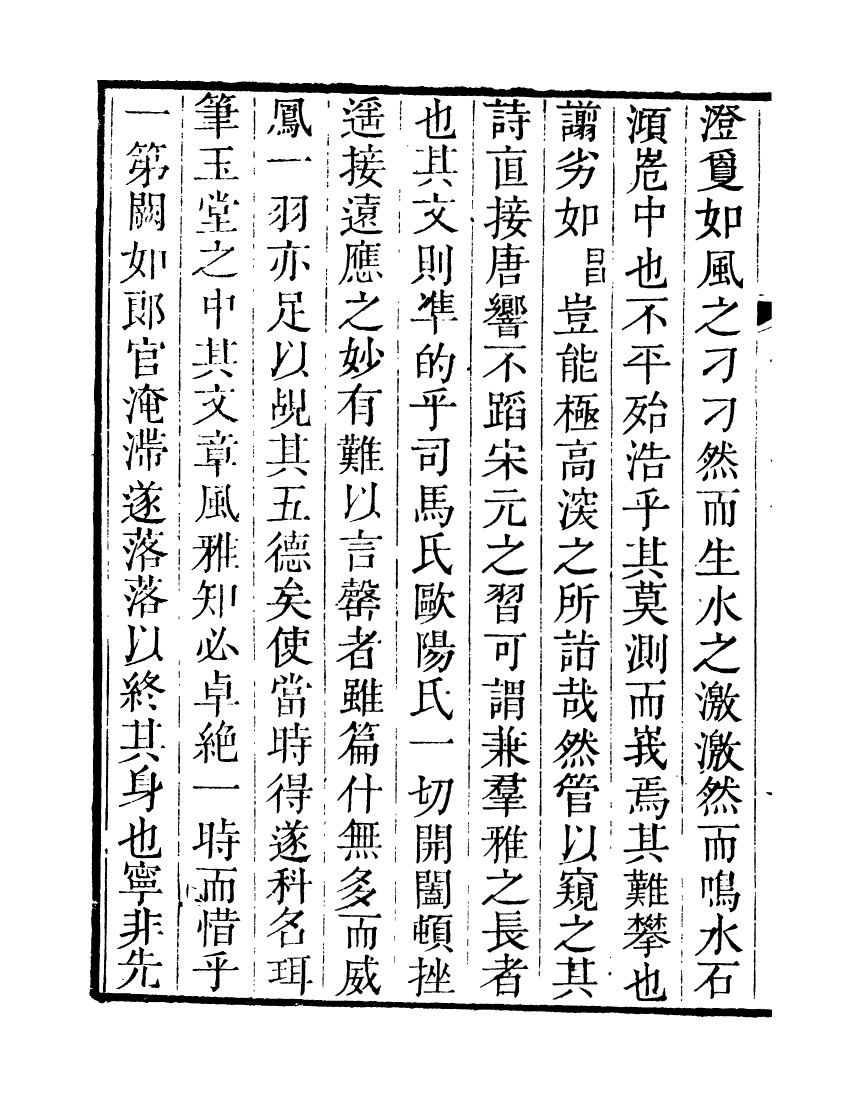 澄夐如風之刁刁然而生水之激激然而鳴水石
澒兀中也不平殆浩乎其莫測而峩焉其難攀也
譾劣如昌豈能極高深之所詣哉然管以窺之其
詩直接唐響不蹈宋元之習可謂兼羣雅之長者
也其文則準的乎司馬氏歐陽氏一切開闔頓挫
遥接遠應之妙有難以言罄者雖篇什無多而威
鳳一羽亦足以覘其五德矣使當時得遂科名珥
筆玉堂之中其文章風雅知必卓絶一時而惜乎
一第闕如郎官淹滯遂落落以終其身也寧非先